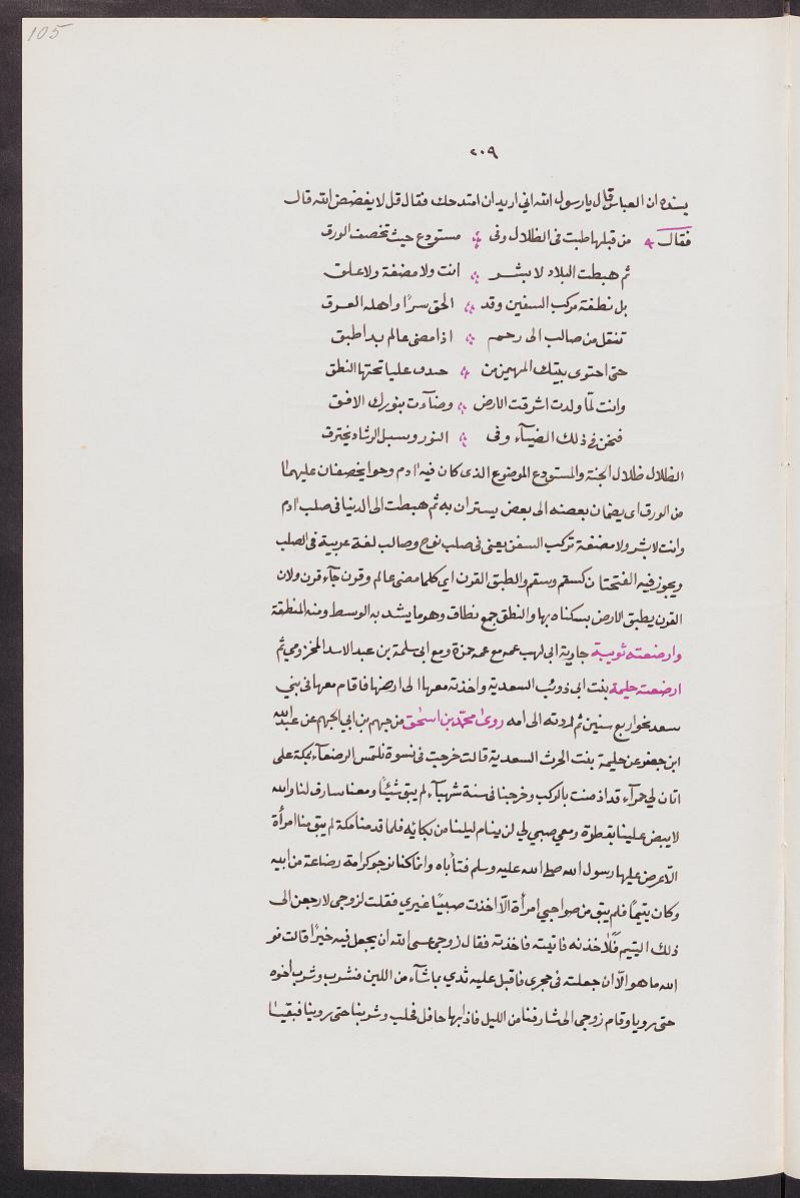 105
٢٠٩
بسنده ان العباس قال يا رسول الله اني اريد ان امتدحك فقال قل لا يفضض الله قال
فقال من قبلها طبت فى الظلال وفى مستودع حيث تخصف الورق
ثم هبطت البلاد لا بشر انت ولا مضغة ولا علق
بل نطفة مركب السفين وقد الحق سرًا واهله الغرق
تنقل من صالب الى رحم اذا مضى عالم بدا طبق
حتى احتوى بيتك المهيمن من حدى عليا تحتها النطق
وانت لمّا ولدت اشرقت الارض وضآءت بنورك الافق
فنحن فى ذلك الضيآء وفى النور وسبل الرشاد نخترق
الظلال ظلال الجنة والمستودع الموضوع الذى كان فيه ادم وحوا يخصفان عليهما
من الورق اى يضمان بعضه الى بعض يستران به ثم هبطت الى الدنيا فى صلب ادم
وانت لا بشر ولا مضغة تركب السفن يعنى فى صلب نوح وصالب لغة عربية فى الصلب
ويجوز فيه الفتحتان كسقم وسقم والطبق القرن اى كلما مضى عالم وقرن جآء قرن ولان
القرن يطبق الارض بسكناه بها والنطق جمع نطاق وهو ما يشد به الوسط ومنه المنطقة
وارضعته ثويبة جارية ابى لهب عمه مع عمه حمزة ومع ابى سلمة بن عبد الاسد المخزومي ثم
ارضعته حليمة بنت ابى ذوئب السعدية واخذته معها الى ارضها فاقام معها فى بني
سعد نحو اربع سنين ثم ردته الى امه روى محمد بن اسحٰق من جهم بن ابي الجهم عن عبد الله
ابن جعفر عن حليمة بنت الحرث السعدية قالت خرجت فى نسوة نلتمس الرضعآء بمكة على
اتان لي حمرآء قد اذ منت بالركب وخرجنا فى سنة شهبآء لم يبق شيئًا ومعنا سارف لنا والله
لا يبض علينا بقطرة ومعي صبي لي لن ينام ليلنا من بكائه فلما قدمنا مكة لم يبق منا امرأة
الّا عرض عليها رسول الله صلى الله عليه وسلم فتأباه وانما كنا نرجو كرامة رضاعة من ابيه
وكان يتيمًا فلم يبق من صواحبي امرأة الّا اخذت صبيًا غيري فقلت لزوجى لارجعن الى
ذلك اليتيم فلاٰخذنه فاتيته فاخذته فقال زوجى عسى الله ان يجعل فيه خيرًا قالت فو
الله ما هو الّا ان جعلته فى حجرى فاقبل عليه ثدي بما شآء من اللبن فشرب وشرب اخوه
حتى رويا وقام زوجى الى شارفنا من الليل فاذا بها حافل فحلب وشربنا حتى روينا فبقينا